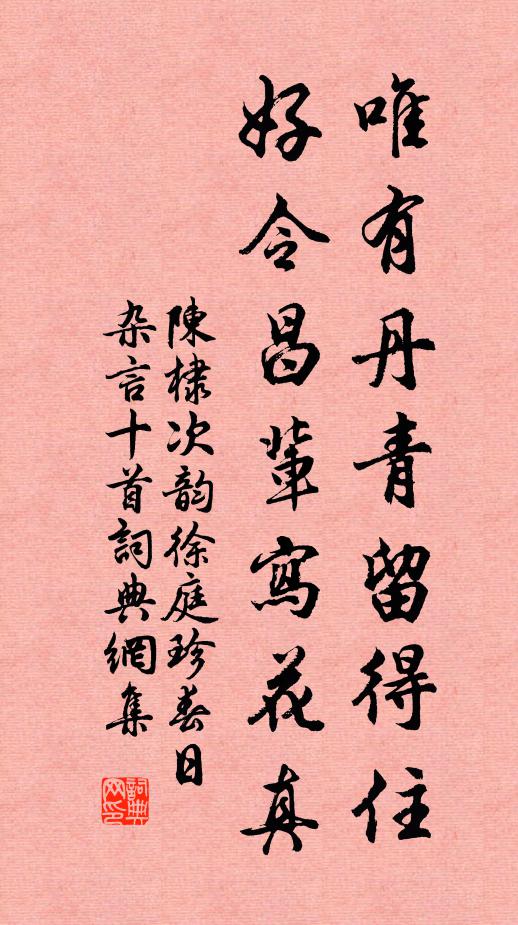 唯有丹青留得住
好令昌輩寫花真
陳棣次韵徐庭珍春日
杂言十首詞典網集
詞典
网印